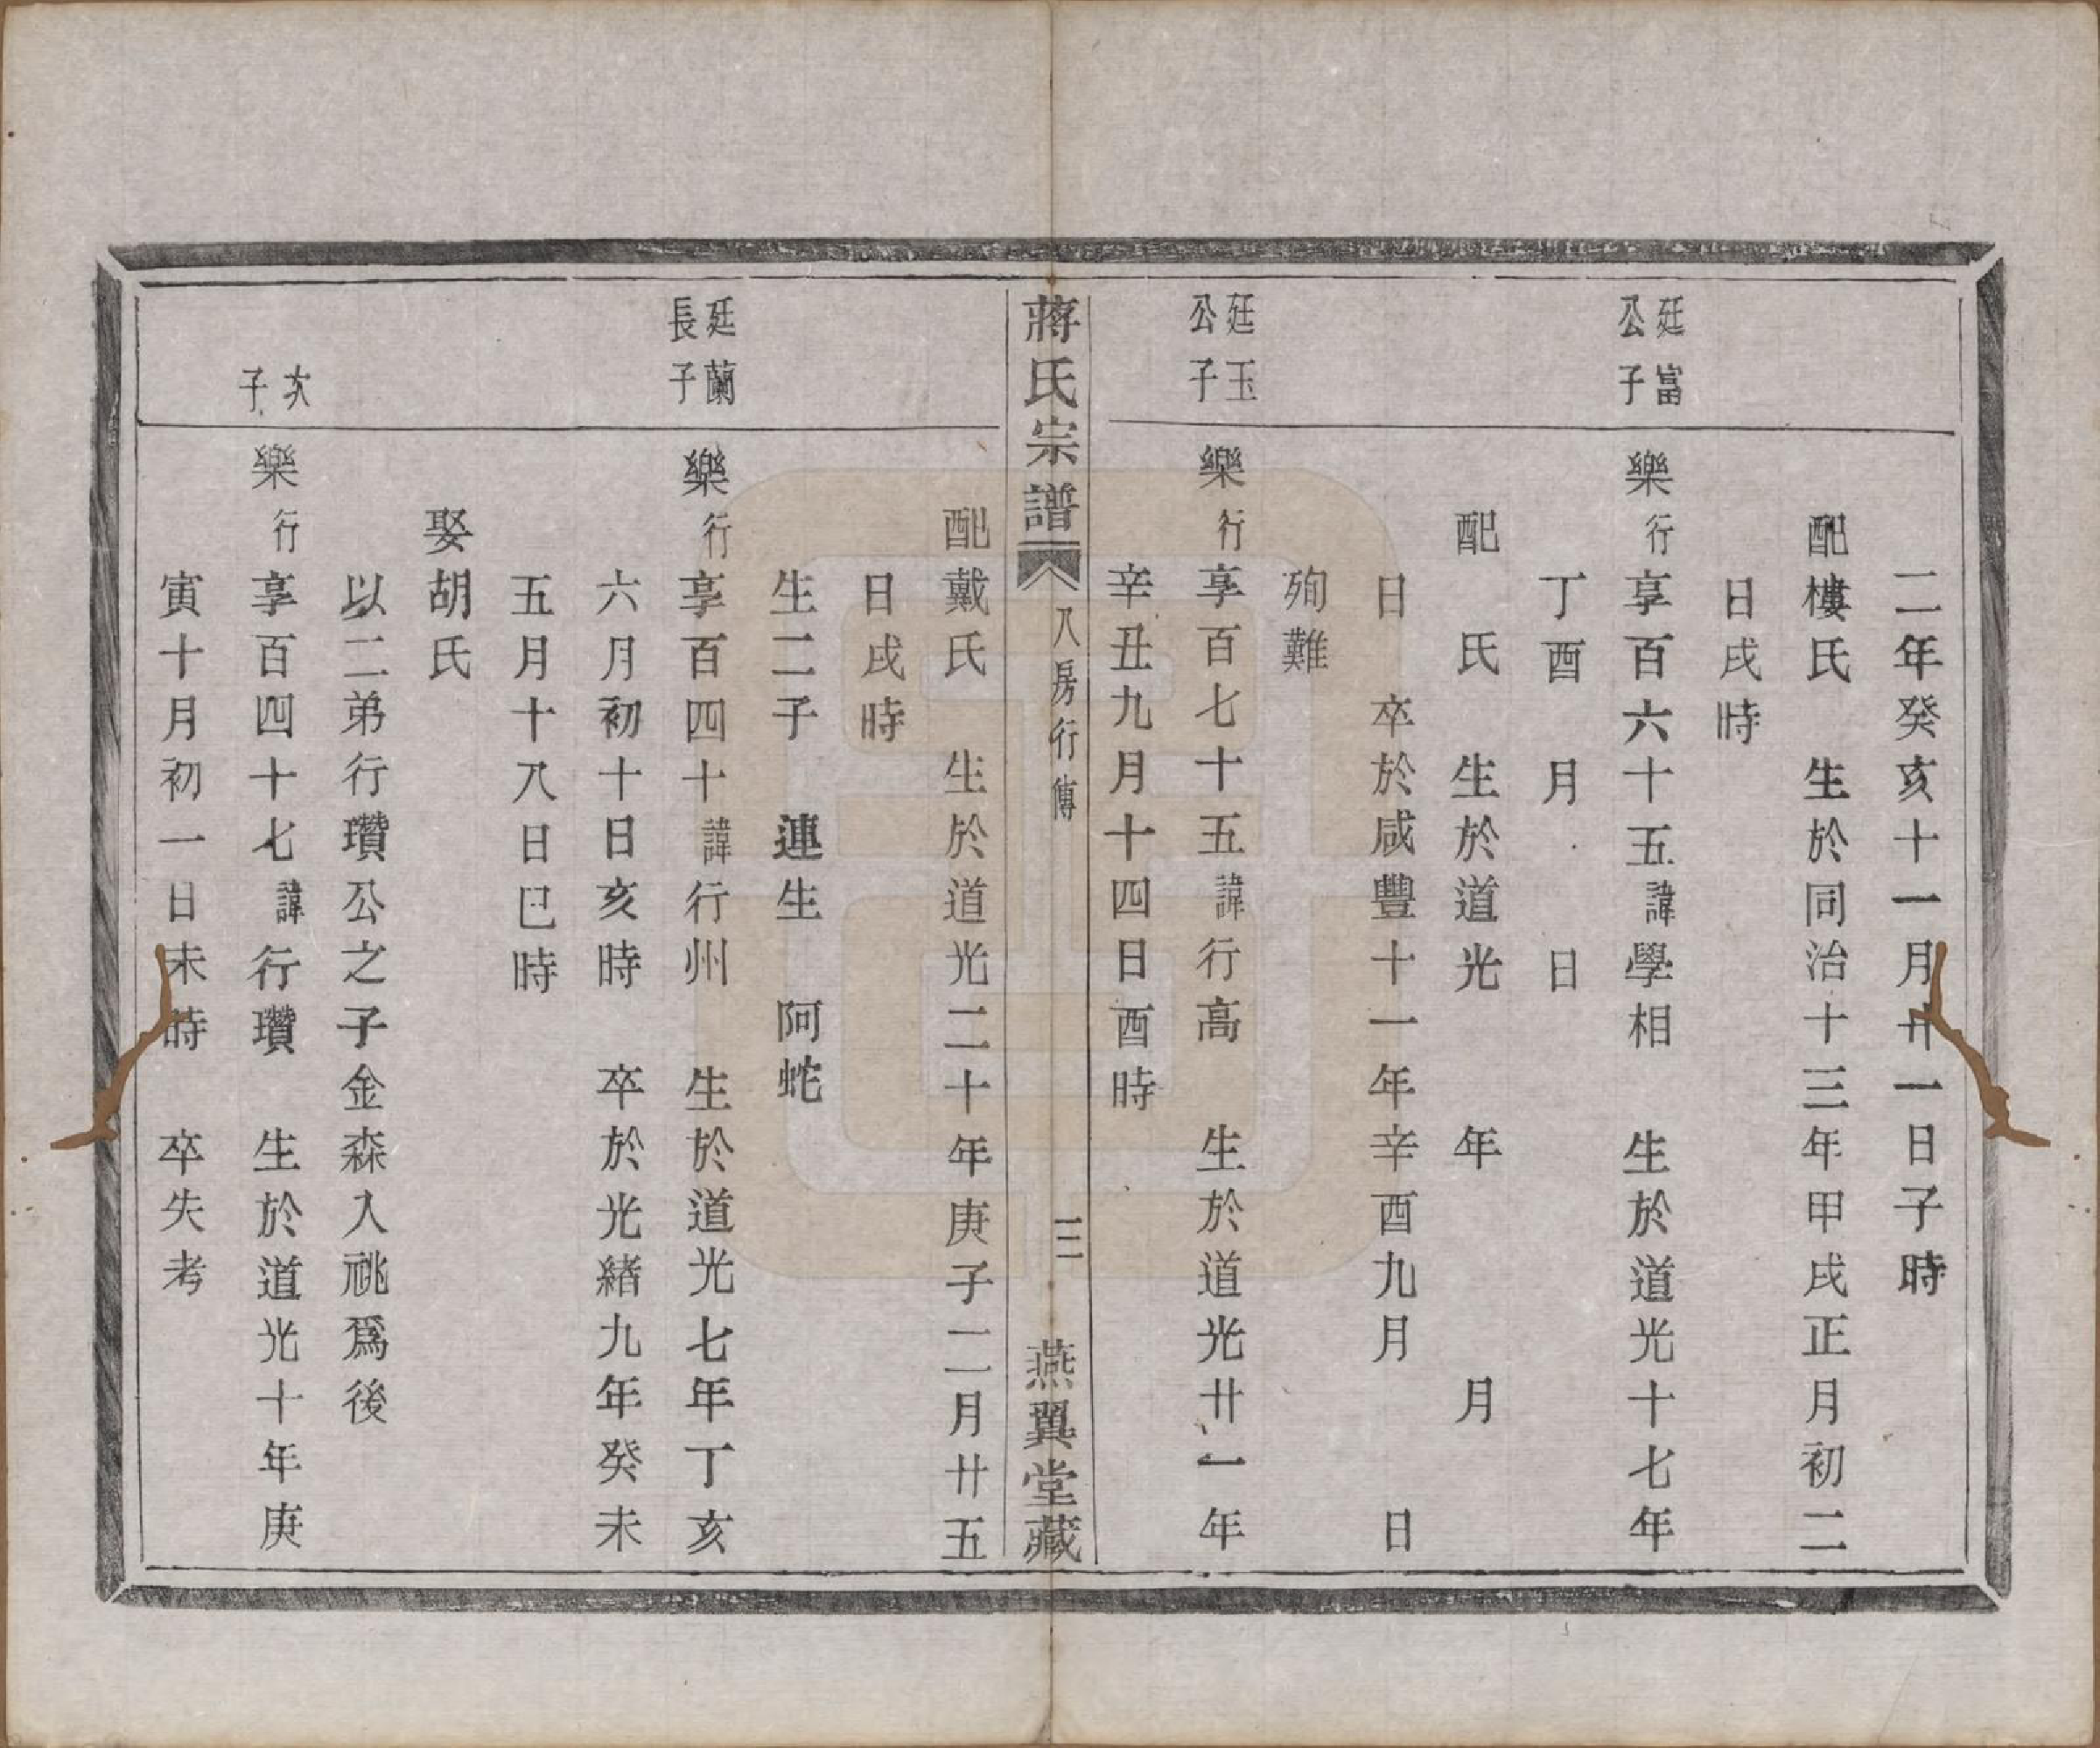 二年癸亥十一月廿一日子時
配樓氏　生於同治十三年甲戌正月初二
日戌時
廷富公子
樂行享百六十五諱學相　生於道光十七年
丁酉　月　日
配　氏　生於道光　年　月
日　卒於咸豐十一年辛酉九月　日
殉難
廷玉公子
樂行享百七十五諱行高　生於道光廿一年
辛丑九月十四日酉時
蔣氏宗譜　八房行傳　三　燕翼堂藏
配戴氏　生於道光二十年庚子二月廿五
日戌時
生二子　連生　阿蛇
廷蘭長子
樂行享百四十諱行州　生於道光七年丁亥
六月初十日亥時　卒於光緒九年癸未
五月十八日巳時
娶胡氏
以二弟行瓚公之子金森入祧爲後
次子
樂行享百四十七諱行瓚　生於道光十年庚
寅十月初一日未時　卒失考